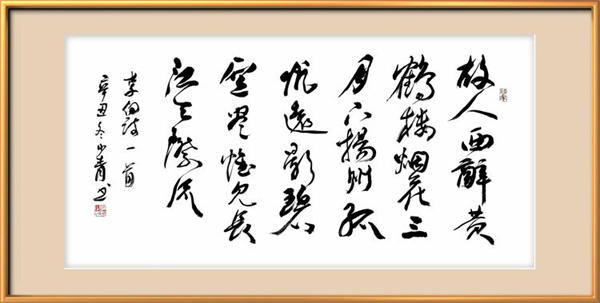 故人西辭黄
鶴楼烟花三
月下揚州孤
帆遠影碧
空盡惟見長
江天際流
李白詩一首
辛丑冬少青书